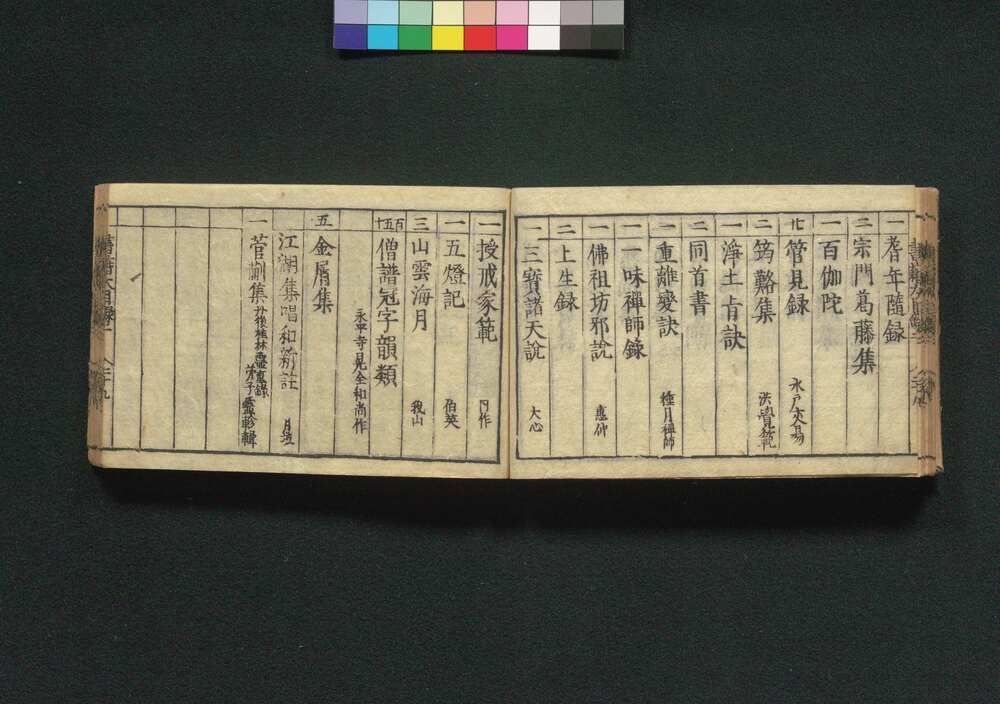 一 耆年隨録
二 宗門葛藤集
一 百伽陀
九 管見録 水戸夾湯
二 筠谿集 洪覺範
一 淨土肯訣
二 同首書
一 重離變訣 種月禪師
一 一味禪師錄
一 佛祖坊邪說 惠仲
二 上生録
一 三寶諸天說 大心
一 授戒家範 同作
一 五燈記 伯英
三 山雲海月 峩山
百五十 僧譜冠字韻類
永平寺見全和尚作
五 金屑集
江湖集唱和新註 月泣
一 菅蒯集 丹後桂林靈重錄
弟子靈畛輯